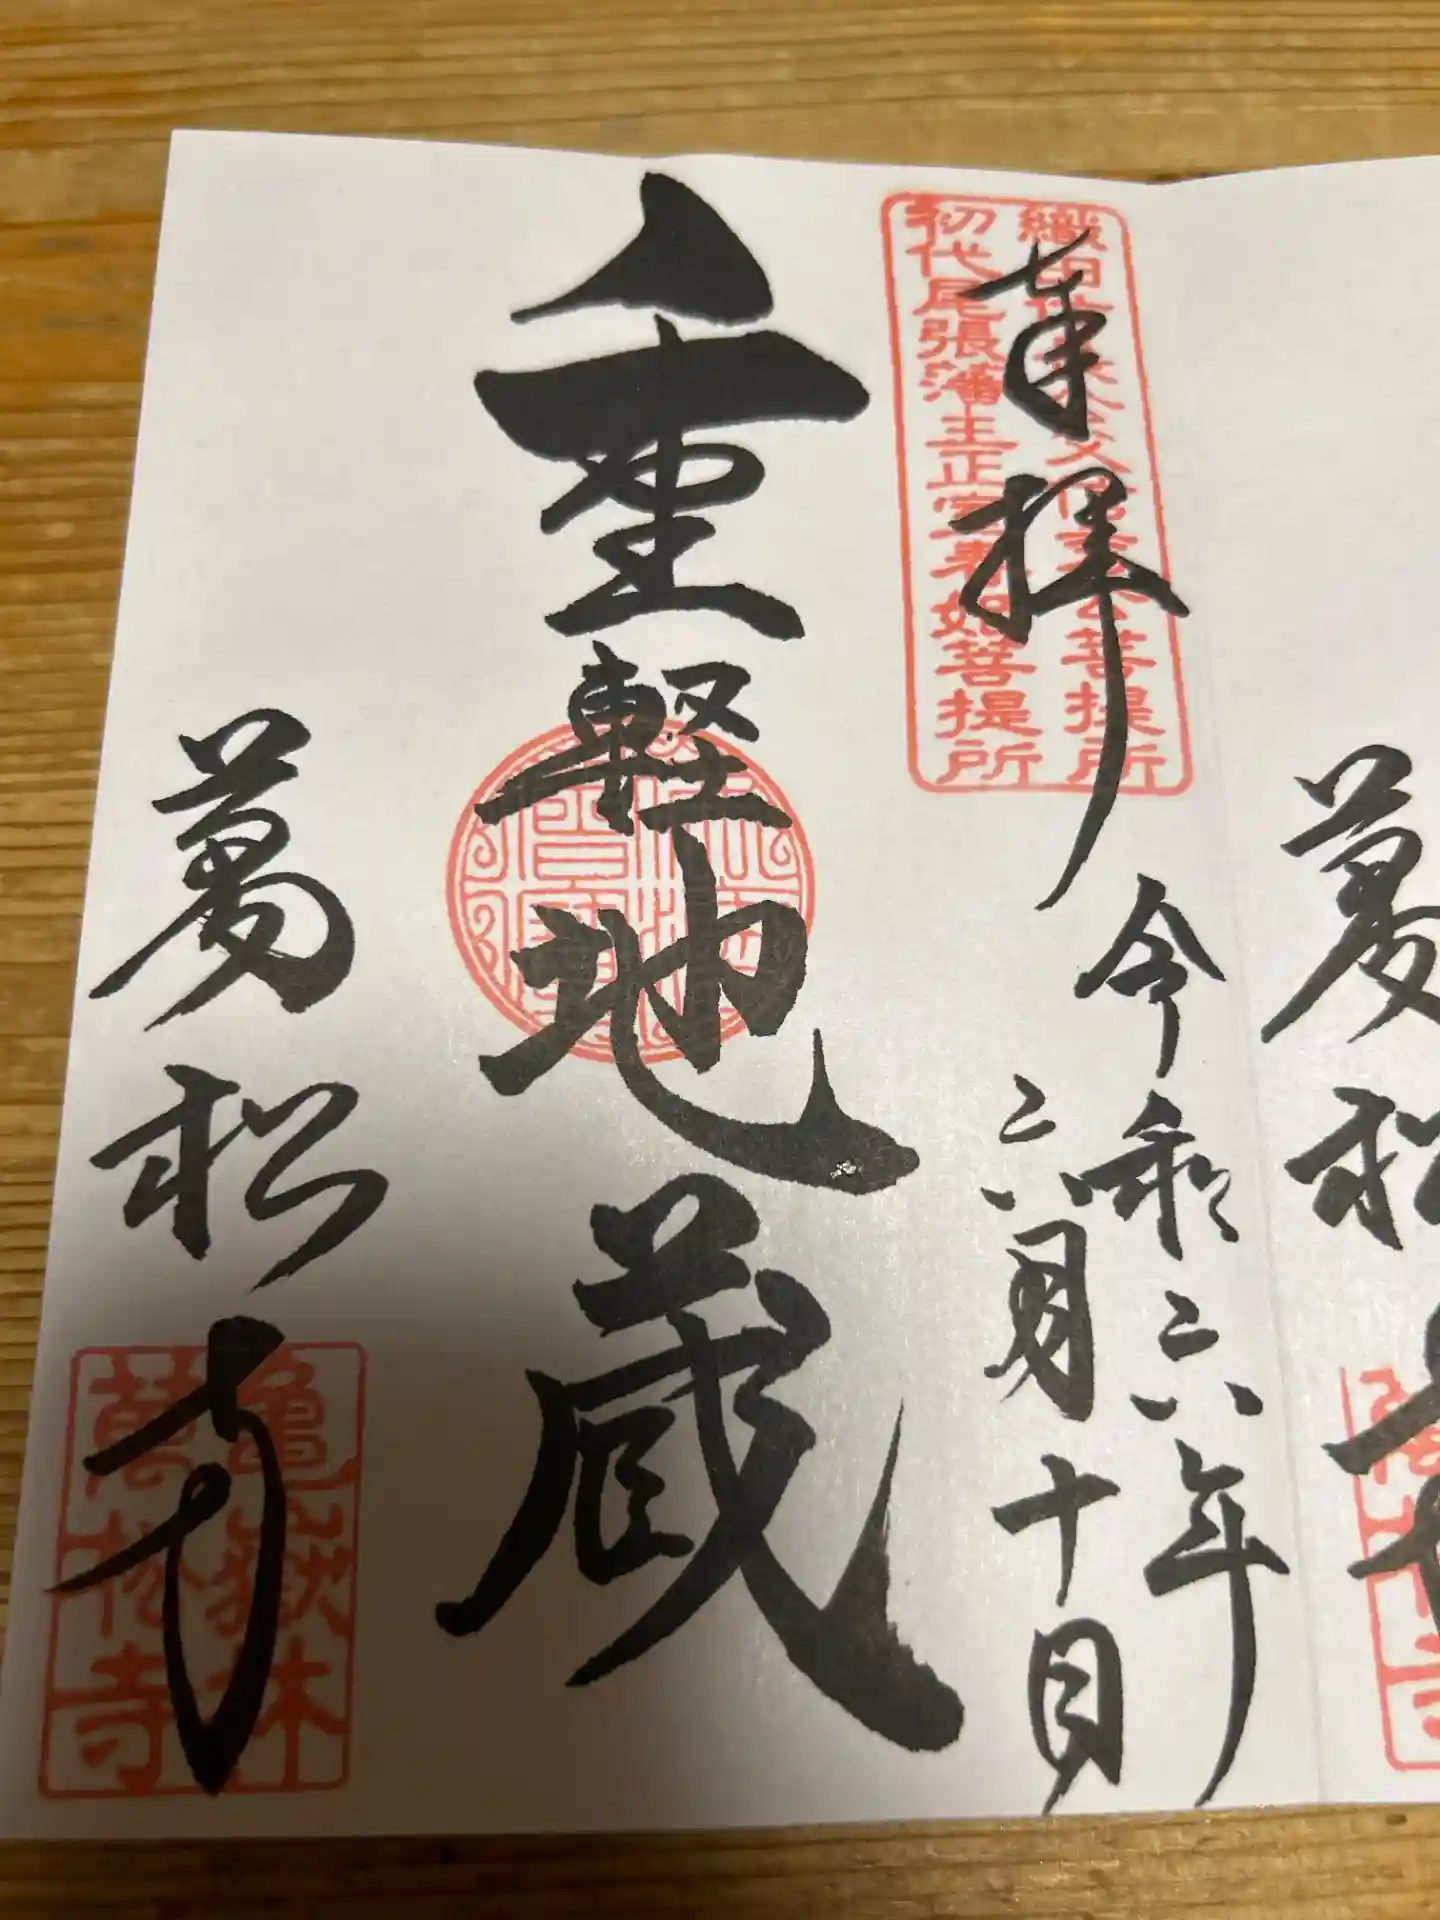 萬松寺
織田信長公父信秀公菩提所
初代尾張藩主正室春姫菩提所
奉拝
令和六年
六月十日
重軽地蔵
萬松寺
亀嶽林
萬松寺